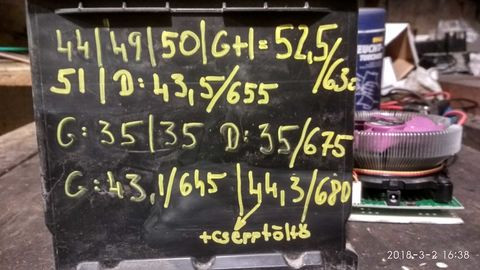 44/49/50/G+1=52,5/630
51/D:43,5/655
G:35/35 D:35/675
G:43,1/645/44,3/680
+CSEPPTÖLTŐ
LEUCHT-
2018-3-2 16:38